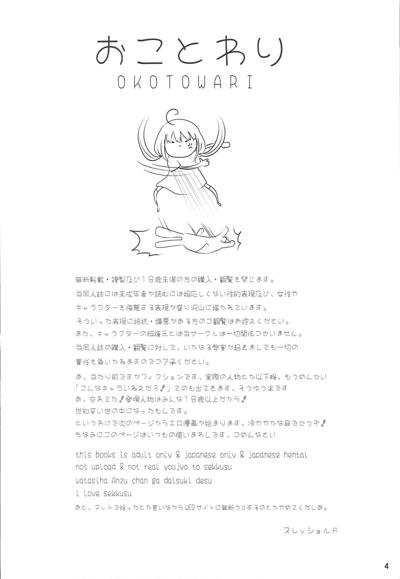 おことわり
OKOTOWARI
無断転載・複製及び18歳未満の方の購入・観覧を禁じます。
当同人誌には未成年者が読むには相応しくない性的表現及び、女性や
キャラクターを侮辱する表現が盛り沢山に描かれています。
そういった表現に抵抗・嫌悪がある方のご観覧はお控えください。
また、キャラクターの版権元とは当サークルは一切関係ございません。
当同人誌の購入・観覧に対して、いかなる弊害が起きましても一切の
責任を負いかねますのでご了承ください。
あ、当たり前ですがフィクションです、実際の人物とか以下略、もうめんかい
「こんなキャラいねえだろ！」てのも出てきます、そうゆう本です
あ、忘れてた！登場人物はみんな18歳以上だから！
世知辛い世の中になったもんです。
というわけで次のページからエロ漫画が始まります、冷ややかな目でどうぞ！
ちなみにこのページはいつもの使いまわしです、ごめんなさい
this books is adult only & japanese only & japanese hentai
not upload & not real youjyo to sekkusu
watasiha Anzu chan ga daisuki desu
i love sekkusu
あと、ネットで拾ったとか言いながらWEBサイトに無断うpするのとかやめてくださいあ。
スレッショルド
4